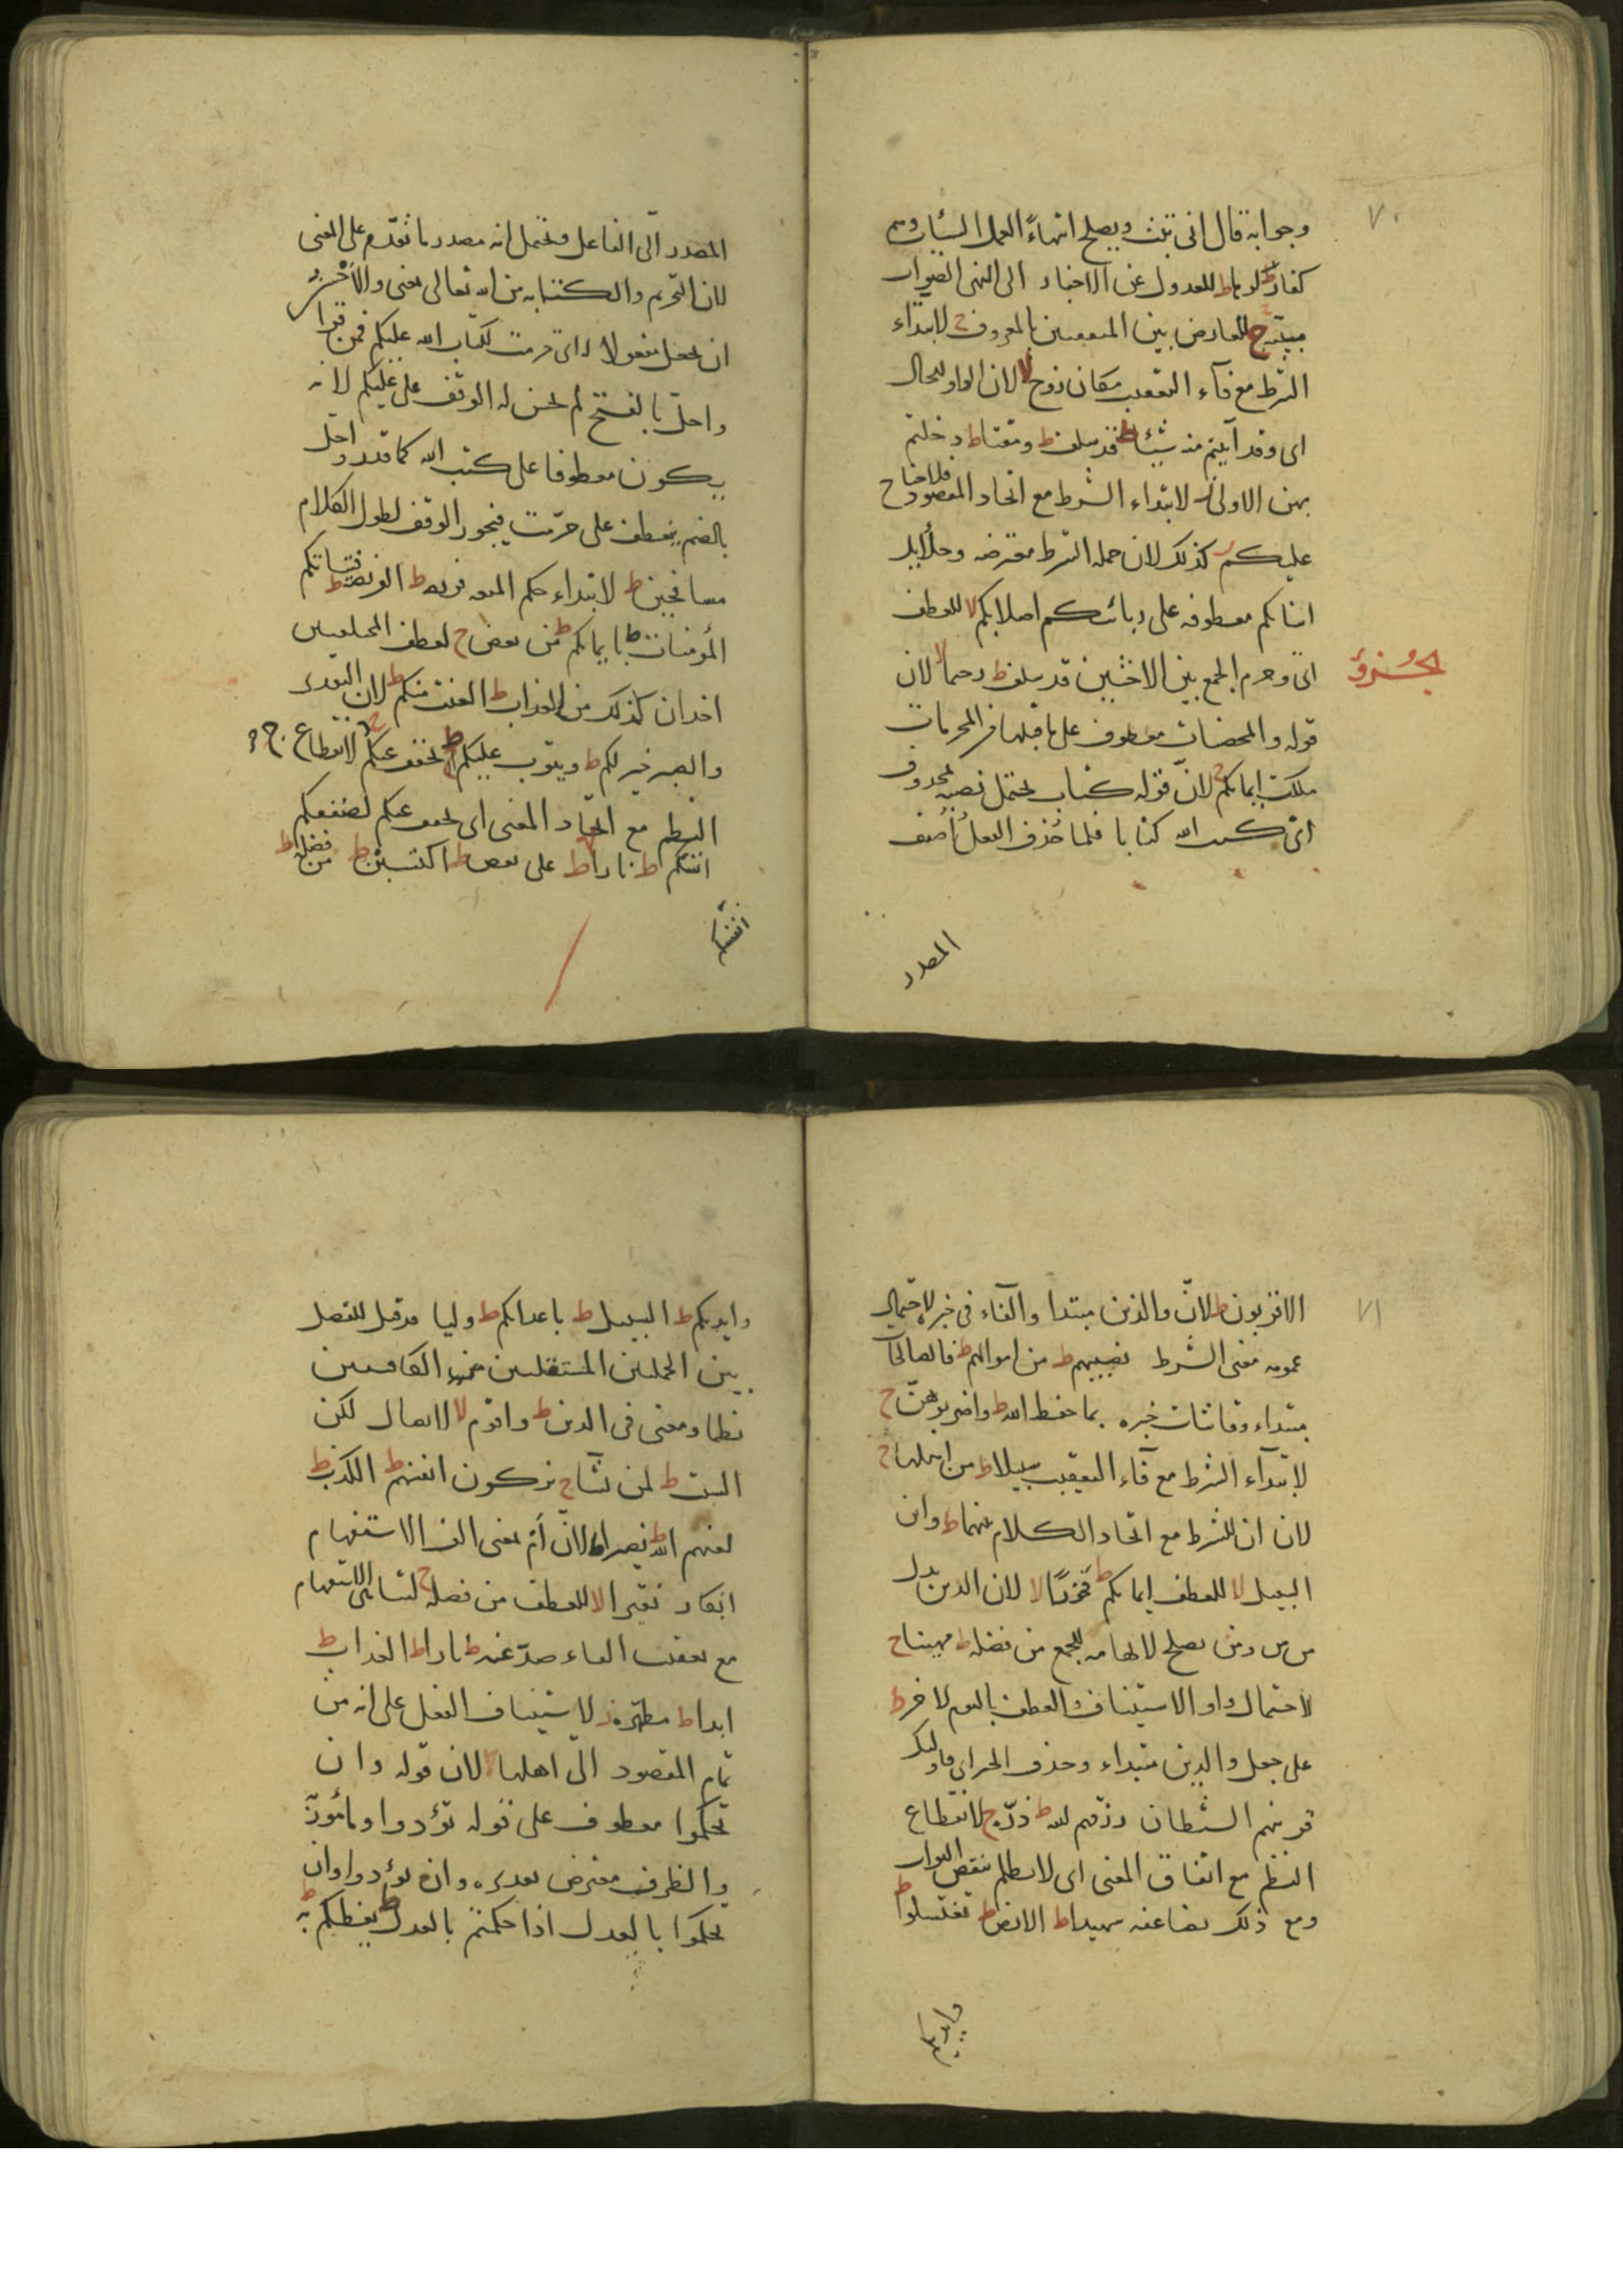 ٧٠
وجوابه قال انى تبت ويصلح انتهاءً العمل السيئات وهم
كفارط كرها ط للعدول عن الاخبار الى النهى
مبينة ج للعارض بين المتفقين بالمعروف ج لابتداء
الشرط مع فاء التعقيب مكان زوج لا لان الواو للحال
اى وقد آتيتم منه شيئا ط قد سلف ط ومقتا ط دخلتم
بهن الاولى لابتداء الشرط مع اتحاد المقصود فلا جناح
عليكم ز كذلك لان جملة الشرط معترضه وحلائل
ابنائكم معطوفه على ربائبكم اصلابكم لا للعطف
الجزؤ
اى وحرم الجمع بين الاختين قد سلف ط رحيما لا لان
قوله والمحصنات معطوف على ما قبلها من المحرمات
ملكت ايمانكم ج لان قوله كتاب يحتمل نصبه لمحذوف
اى كتب الله كتابا فلما حذف الفعل أضيف
المصدر
المصدر الى الفاعل ويحتمل انه مصدر ما تقدم على المعنى
لان التحريم والكتابه من الله تعالى بمعنى والاخر
ان يجعل مفعولا اى حرمت لكتاب الله عليكم فمن قرا
واحلّ بالفتح لم يحسن له الوقف على عليكم لانه
يكون معطوفا على كتب الله كما قدر واحل
بالضم يعطف على حرّمت فيجوز الوقف لطول الكلام
مسافحين ط لابتداء حكم المتعه فريضه ط الفريضه ط فتياتكم
المؤمنات ط بايمانكم ط من بعض ج لعطف المختلفين
اخدان كذلك من العذاب ط العنت منكم ط لان التقدير
والصبر خير لكم ط ويتوب عليكم ط يخفف عنكم ج لانقطاع
النظم مع اتحاد المعنى اى يخفف عنكم لضعفكم
انفسكم ط نارا ط على بعض ط اكتسبن ط من فضله ط
٧١
الاقربون ط لان والذين مبتدا والفاء فى خبره لاحتمال
عمومه معنى الشرط نصيبهم ط من اموالهم ط فالصالحات
مبتداء وقانتات خبره بما حفظ الله ط واضربوهن ج
لابتدآء الشرط مع فآء التعقيب سبيلا ط من اهلها ج
لان ان للشرط مع اتحاد الكلام بينهما ط وابن
السبيل لا للعطف ايمانكم ط فخورًا لا لان الذين بدل
من من ومن يصلح للجمع من فضله ط مهينا ج
لاحتمال واو الاستيناف والعطف باليوم الاخر ط
على جعل والذين مبتداء وحذف الخبر اى فاولئك
قرينهم الشيطان رزقهم الله ط ذرّة ج لانقطاع
النظم مع اتفاق المعنى اى لا يظلم بنقص الثواب
ومع ذلك يضاعفه شهيدا ط الارض ط تغتسلوا ط
وايديكم
وايديكم ط السبيل ط باعدائكم ط وليا قد قيل للفصل
بين الجملتين المستقلتين
نظما ومعنى فى الدين ط واقوم لا لاتصال لكن
السبت ط لمن يشآ ج يزكون انفسهم ط الكذب ط
لعنهم الله ط نصيرا ط لانّ أم بمعنى الف الاستفهام
انكار نقيرا لا للعطف من فضله ج لتناهى الاستفهام
مع تعقيب الفاء صدّ عنه ط نارا ط العذاب ط
ابدا ط مطهره ز لاستيناف الفعل على انه من
تمام المقصود الى اهلها لا لان قوله وان
تحكموا معطوف على قوله تؤدوا
والظرف معترض تقديره وان تؤدوا وان
تحكموا بالعدل اذا حكمتم بالعدل ط يعظكم به ط